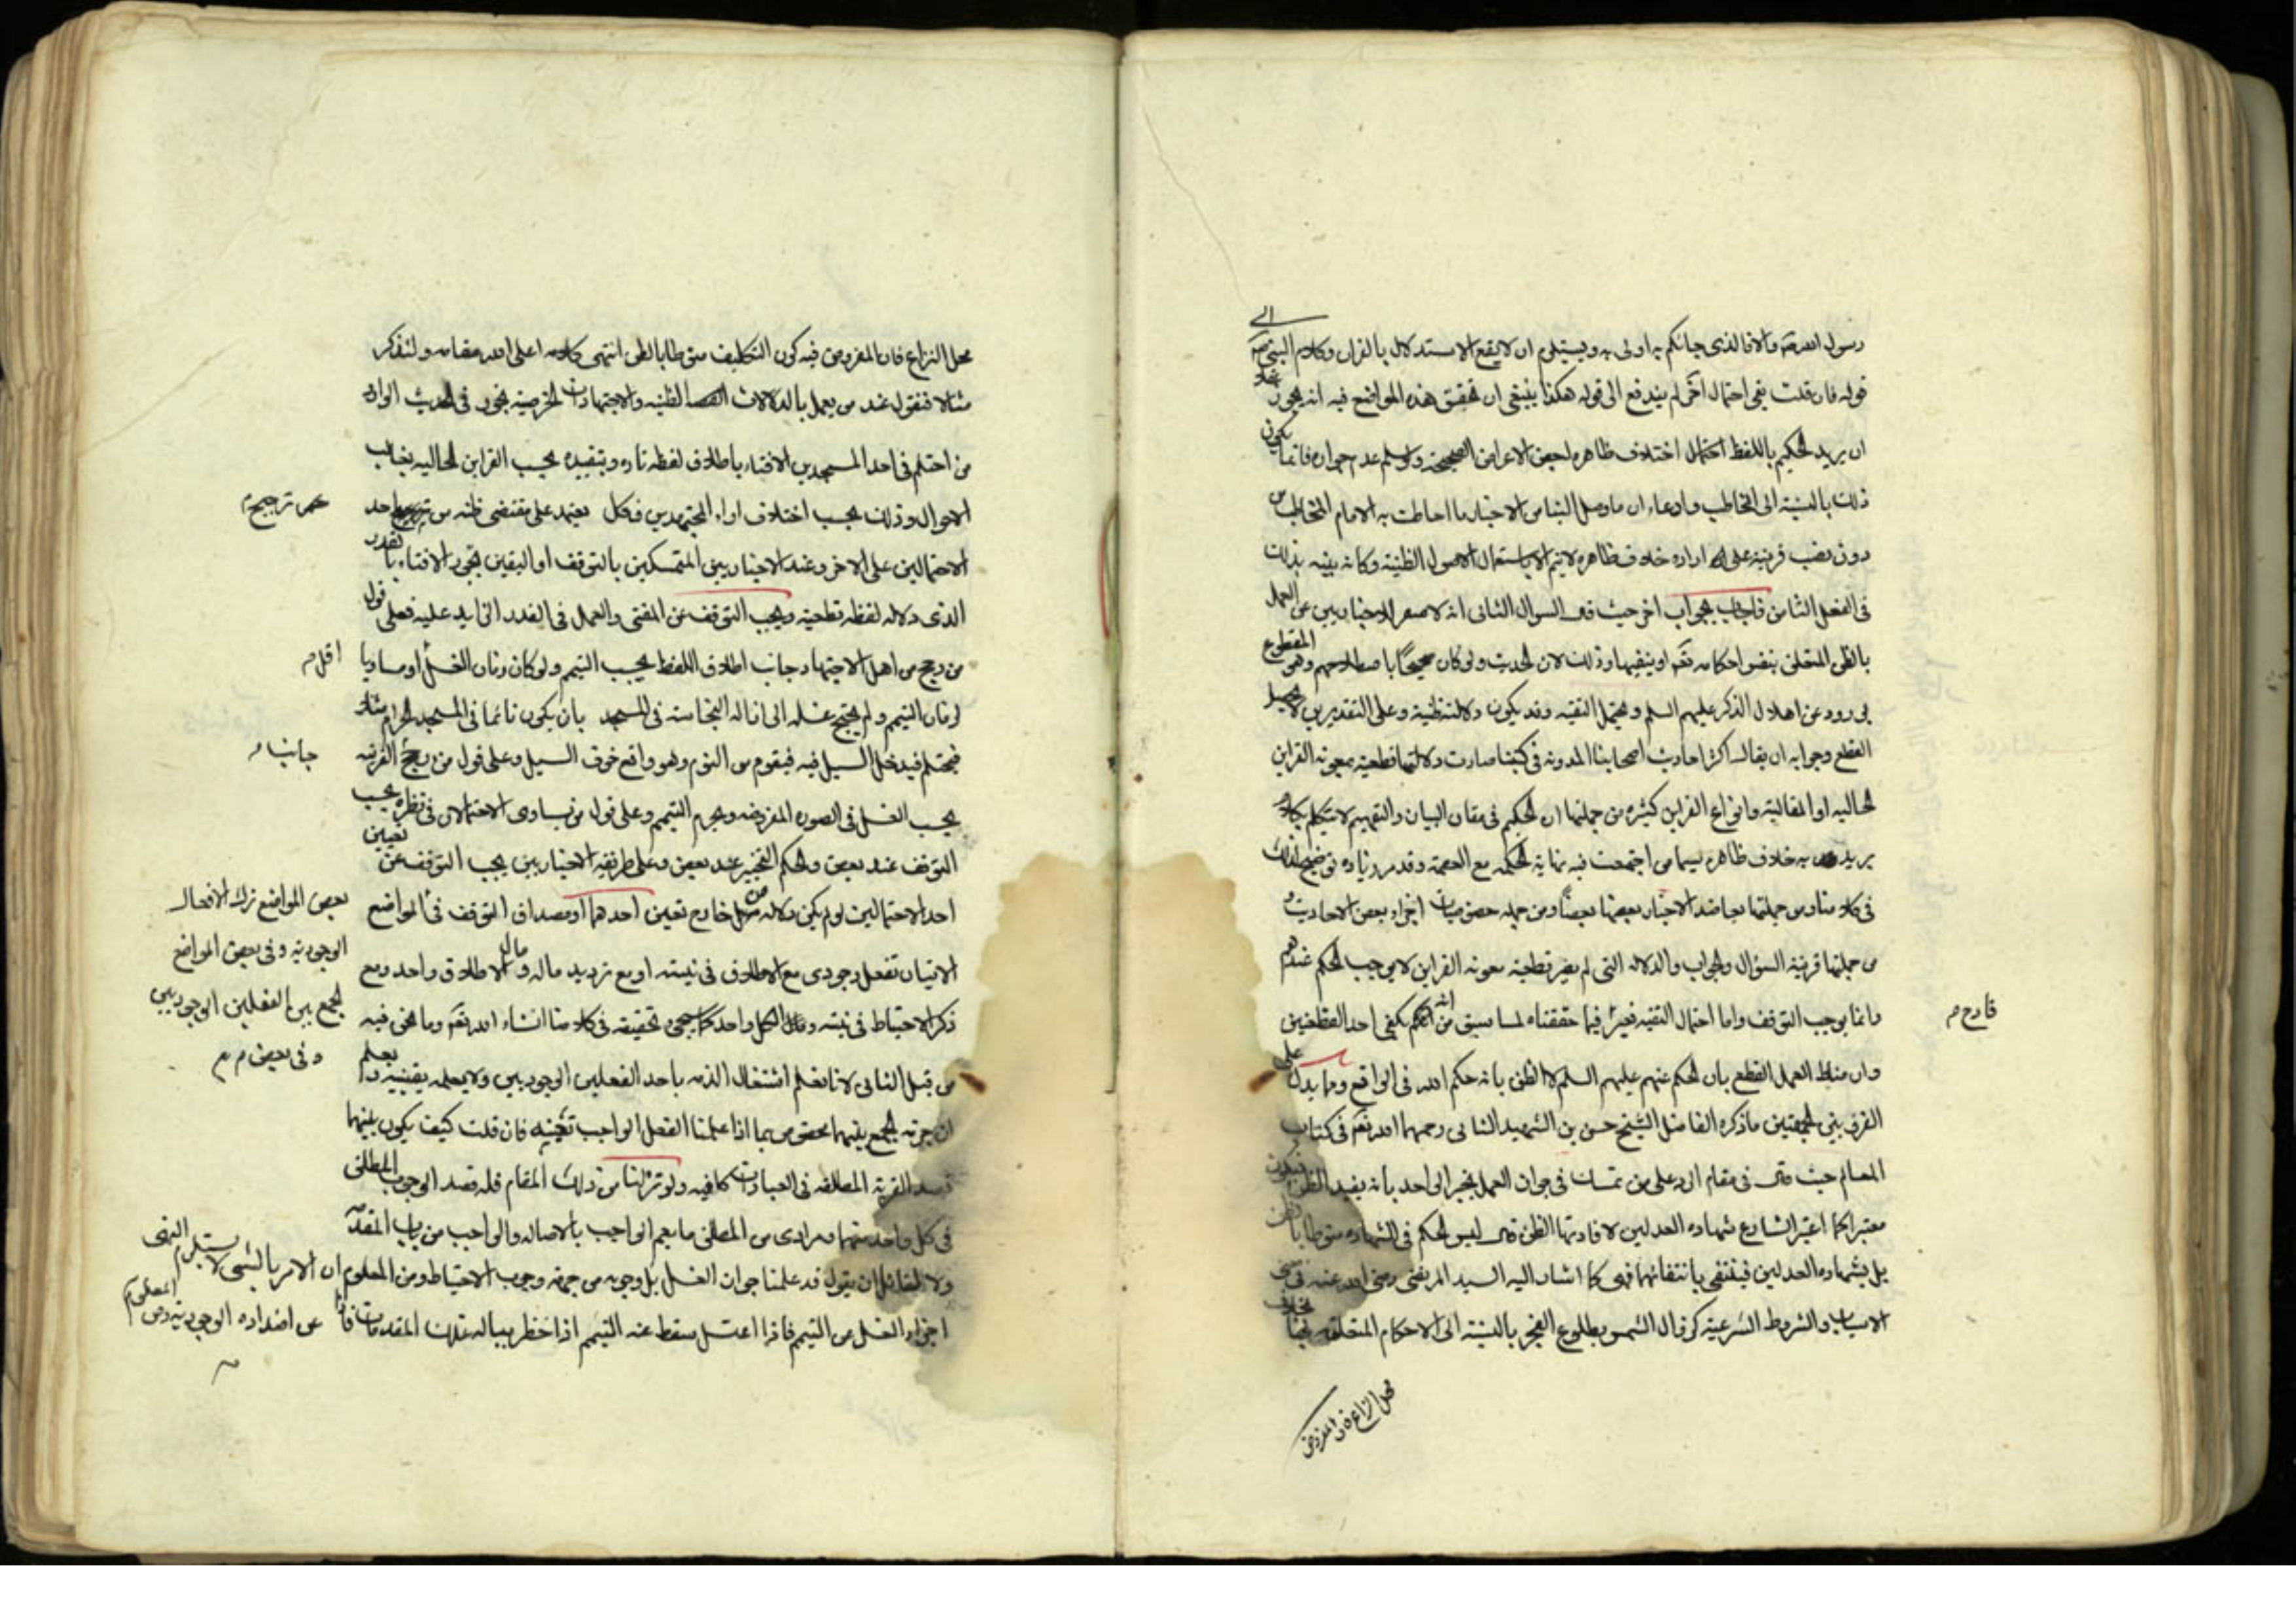 رسول الله ص والا فالذى جائكم به اولى به ويستلزم ان لا يقع الاستدلال بالقران وكلام النبى ص الى
قوله فان قلت بقى احتمال اخر لم يندفع الى قوله هكذا ينبغى ان تحقق هذه المواضع فيه انه يجوز
ان يريد الحكيم باللفظ احتمال اختلاف ظاهره لبعض الاعراض الصحيحة ولو سلم عدم جوازه فانما يكون
ذلك بالنسبة الى المخاطب وادعاء ان ما وصل الينا من الاخبار ما احاطت به الامام المخاطب من
دون نصب قرينة على ارادة خلاف ظاهره لا يتم الا باستعمال الاصول الظنية وكانه ينبه بذلك
فى الفصل الثامن فاجاب بجواب اخر حيث قال السوال الثانى انه لا مفر للاخباريين عن العمل
بالظن المتعلق بنفس احكامه تعالى او بنفيها وذلك لان الحديث ولو كان صحيحا باصطلاحهم وهو المقطوع
بوروده عن اهل الذكر عليهم السلم وتحمل التقية وقد يكون دلالته ظنية وعلى التقديرين لا يحصل
القطع وجوابه ان يقال اكثر احاديث اصحابنا المدونة فى كتبنا صارت دلالتها قطعية بمعونة القراين
الحالية او المقالية وانواع القراين كثيره من جملتها ان الحكيم فى مقام البيان والتفهيم لا يتكلم بكلام
يريد به خلاف ظاهره سيما من اجتمعت فيه نهاية الحكمة مع العصمة وقد مر زيادة توضيح لذلك
فى كلامنا ومن جملتها تعاضد الاخبار بعضها بعضا ومن جملة خصوصيات اجزاء بعض الاحاديث و
من جملتها قرينة السؤال والجواب والدلالة التى لم يصر قطعية بمعونة القراين لا يوجب الحكم عندهم
وانما يوجب التوقف واما احتمال التقية فغير فيما حققناه لما سبق من انه يكفى احد القطعيين
قادح م
وان مناط العمل القطع بان الحكم عنهم عليهم السلم لا الظن بانه حكم الله فى الواقع ومما يدل على
الفرق بين الجهتين ما ذكره الفاضل الشيخ حسن بن الشهيد الثانى رحمهما الله تعالى فى كتاب
المعالم حيث قال فى مقام الرد على من تمسك فى جواز العمل بخبر الواحد بانه يفيد الظن فيكون
معتبرا كما اعتبر الشارع شهادة العدلين لافادتها الظن قال ليس الحكم فى الشهاده منوطا بالظن
بل بشهادة العدلين فينتفى بانتفائها فهى كما اشار اليه السيد المرتضى رضى الله عنه فى معنى
الاسباب والشروط الشرعية كزوال الشمس وطلوع الفجر بالنسبة الى الاحكام المتعلقة بهما بخلاف
محل النزاع فان المفروض
محل النزاع فان المفروض فيه كون التكليف منوطا بالظن انتهى كلامه اعلى الله مقامه ولنذكر
مثالا فنقول عند من يعمل بالدلالات الظنية والاجتهادات الخرصية يجوز فى الحديث الوارد
من احتلم فى احد المسجدين الافتاء باطلاق لفظه تاره وبتقييده بحسب القراين الحالية بغالب
الاحوال وذلك بحسب اختلاف اراء المجتهدين فكل يعتمد على مقتضى ظنه من ترجيح احد
ترجيح م
الاحتمالين على الاخر وعند الاخباريين المتمسكين بالتوقف او اليقين يجوز الافتاء بالقدر
الذى دلالة لفظه قطعية ويجب التوقف عن المفتى والعمل فى القدر الزايد عليه فعلى قول
من رجح من اهل الاجتهاد جانب اطلاق اللفظ يجب التيمم ولو كان زمان الغسل او مساويا
اقل م
لزمان التيمم ولم يحتج غسله الى ازالة النجاسة فى المسجد بان يكون نائما فى المسجد الحرام مثلا
فيحتلم فيدخل السيل فيه فيقوم من النوم وهو واقع خوف السيل وعلى قول من رجح القرينة
جانب م
يجب الغسل فى الصوره المفروضه ويحرم التيمم وعلى قول من تساوى الاحتمالان فى نظره يجب
التوقف عند بعض والحكم التخيير عند بعض وعلى طريقة الاخباريين يجب التوقف عن تعيين
احد الاحتمالين لو لم يكن دلاله من خارج تعين احدهما ومصداق التوقف فى المواضع
بعض المواضع ترك الافعال
الوجودية وفى بعض المواضع
الجمع بين الفعلين الوجوديين
وفى بعض م
الاتيان بفعل وجودى مع الاطلاق فى نيته او مع ترديد ماله وما الاطلاق واحد ومع
ذكر الاحتياط فى نيته ومآل الكل واحد كما سيجئ تحقيقه فى كلامنا انشاء الله تعالى وما نحن فيه
من قبيل الثانى لانا نعلم اشتغال الذمه باحد الفعلين الوجوديين ولا نعلمه بعينه ولم يعلم
ان حرمة الجمع بينهما مخصوص بما اذا علمنا الفعل الواجب بعينه فان قلت كيف يكون بينهما
قصد القربة المطلقه فى العبادات كافيه ولو تنزلنا من ذلك المقام فله قصد الوجوب المطلق
فى كل واحد منهما ومرادى من المطلق ما يعم الواجب بالاصاله والواجب من باب المقدمة
ولا لقائل ان يقول قد علمنا جواز الغسل بل وجوبه من جهة وجوب الاحتياط ومن المعلوم ان الامر بالشئ لا يستلزم النهى
عن اضداده الوجودية ومن المعلوم
اجزاء الغسل عن التيمم فاذا اغتسل سقط عنه التيمم اذا خطر بباله تلك المقدمات فاذا